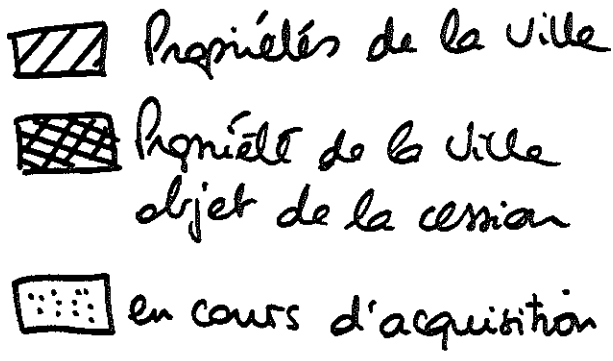 Propriétés de la ville
Propriété de la ville
objet de la cession
en cours d'acquisition